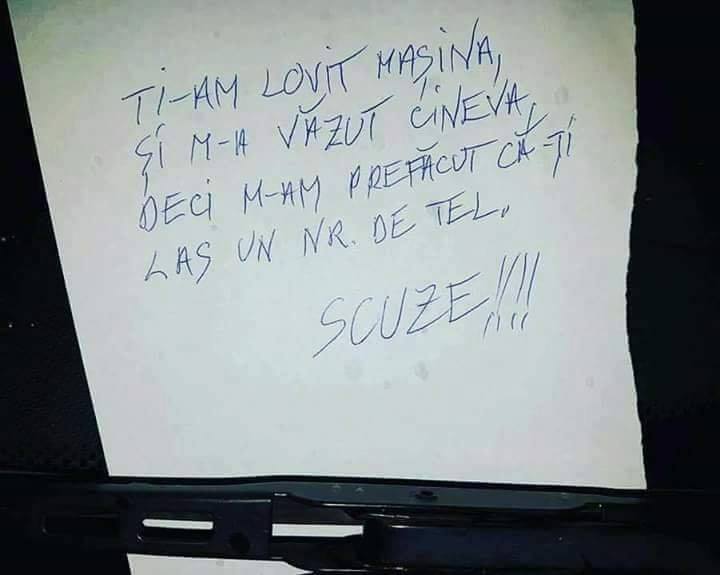 ȚI-AM LOVIT MAȘINA,
ȘI M-A VĂZUT CINEVA,
DECI M-AM PREFĂCUT CĂ-ȚI
LAS UN NR. DE TEL.
SCUZE!!!!